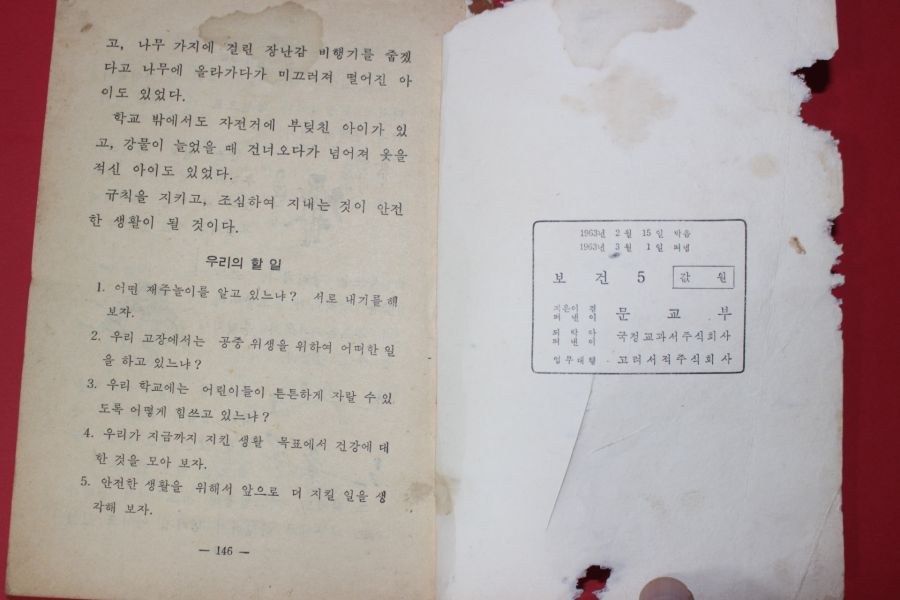 고, 나무 가지에 걸린 장난감 비행기를 줍겠
다고 나무에 올라가다가 미끄러져 떨어진 아
이도 있었다.
학교 밖에서도 자전거에 부딪친 아이가 있
고, 강물이 늘었을 때 건너오다가 넘어져 옷을
적신 아이도 있었다.
규칙을 지키고, 조심하여 지내는 것이 안전
한 생활이 될 것이다.
우리의 할 일
1. 어떤 재주놀이를 알고 있느냐? 서로 내기를 해
보자.
2. 우리 고장에서는 공중 위생을 위하여 어떠한 일
을 하고 있느냐?
3. 우리 학교에는 어린이들이 튼튼하게 자랄 수 있
도록 어떻게 힘쓰고 있느냐?
4. 우리가 지금까지 지킨 생활 목표에서 건강에 대
한 것을 모아 보자.
5. 안전한 생활을 위해서 앞으로 더 지킬 일을 생
각해 보자.
— 146 —
1963년 2월 15일 박음
1963년 3월 1일 펴냄
보건 5 값 원
지은이 겸
펴낸이 문교부
되박아
펴낸이 국정교과서주식회사
업무대행 고려서적주식회사